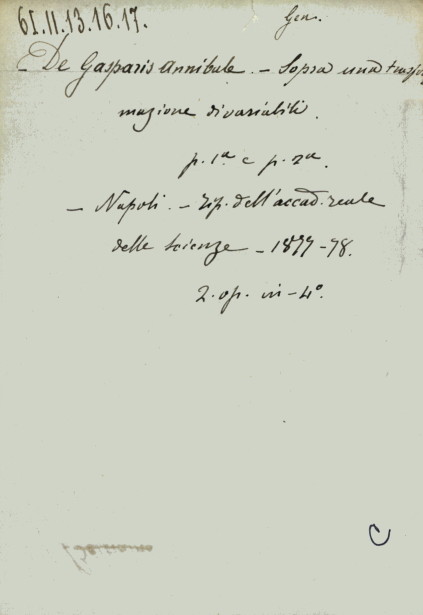 61.II.13.16.17.
Gen.
De Gasparis Annibale. - Sopra una trasfor
mazione di variabili.
p. 1ª e p. 2ª.
- Napoli. - Tip. dell'accad. reale
delle scienze - 1877-78.
2. op. in-4°.
C